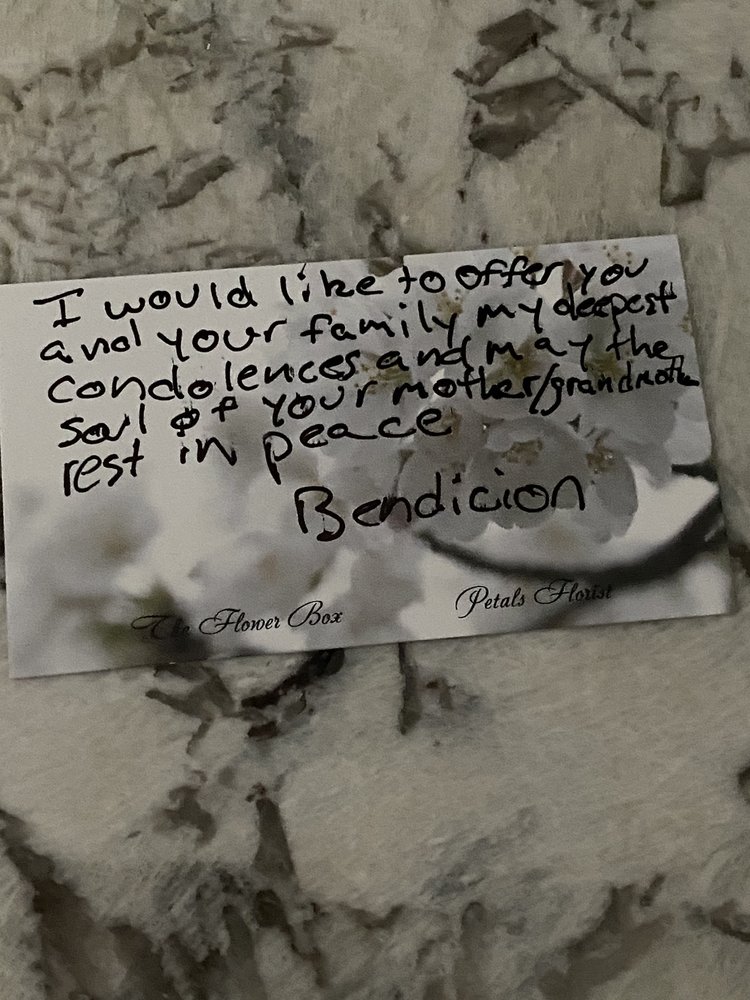 I would like to offer you
and your family my deepest
condolences and may the
soul of your mother/grandmother
rest in peace
Bendicion
The Flower Box
Petals Florist